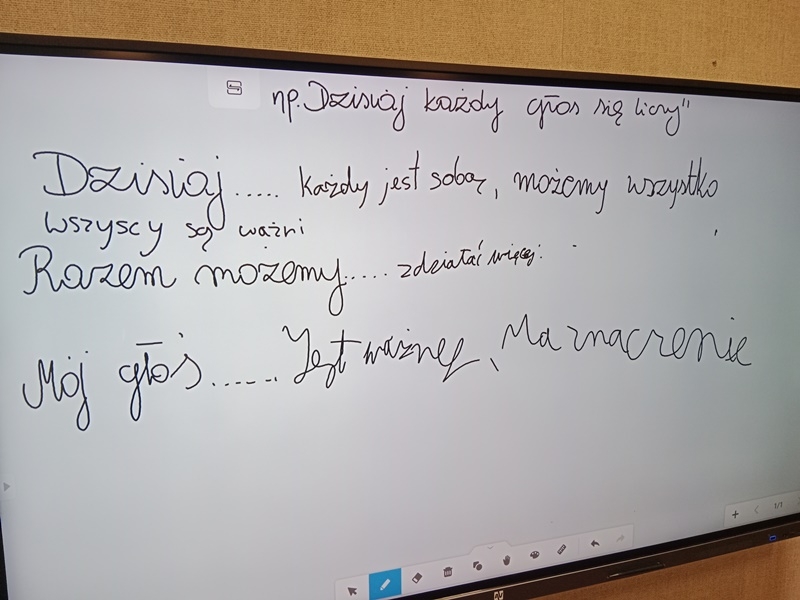 np. Dzisiaj każdy głos się liczy"
Dzisiaj ..... każdy jest sobą, możemy wszystko
wszyscy są ważni
Razem możemy..... zdziałać więcej.
Mój głos....... Jest ważny, Ma znaczenie
1/1